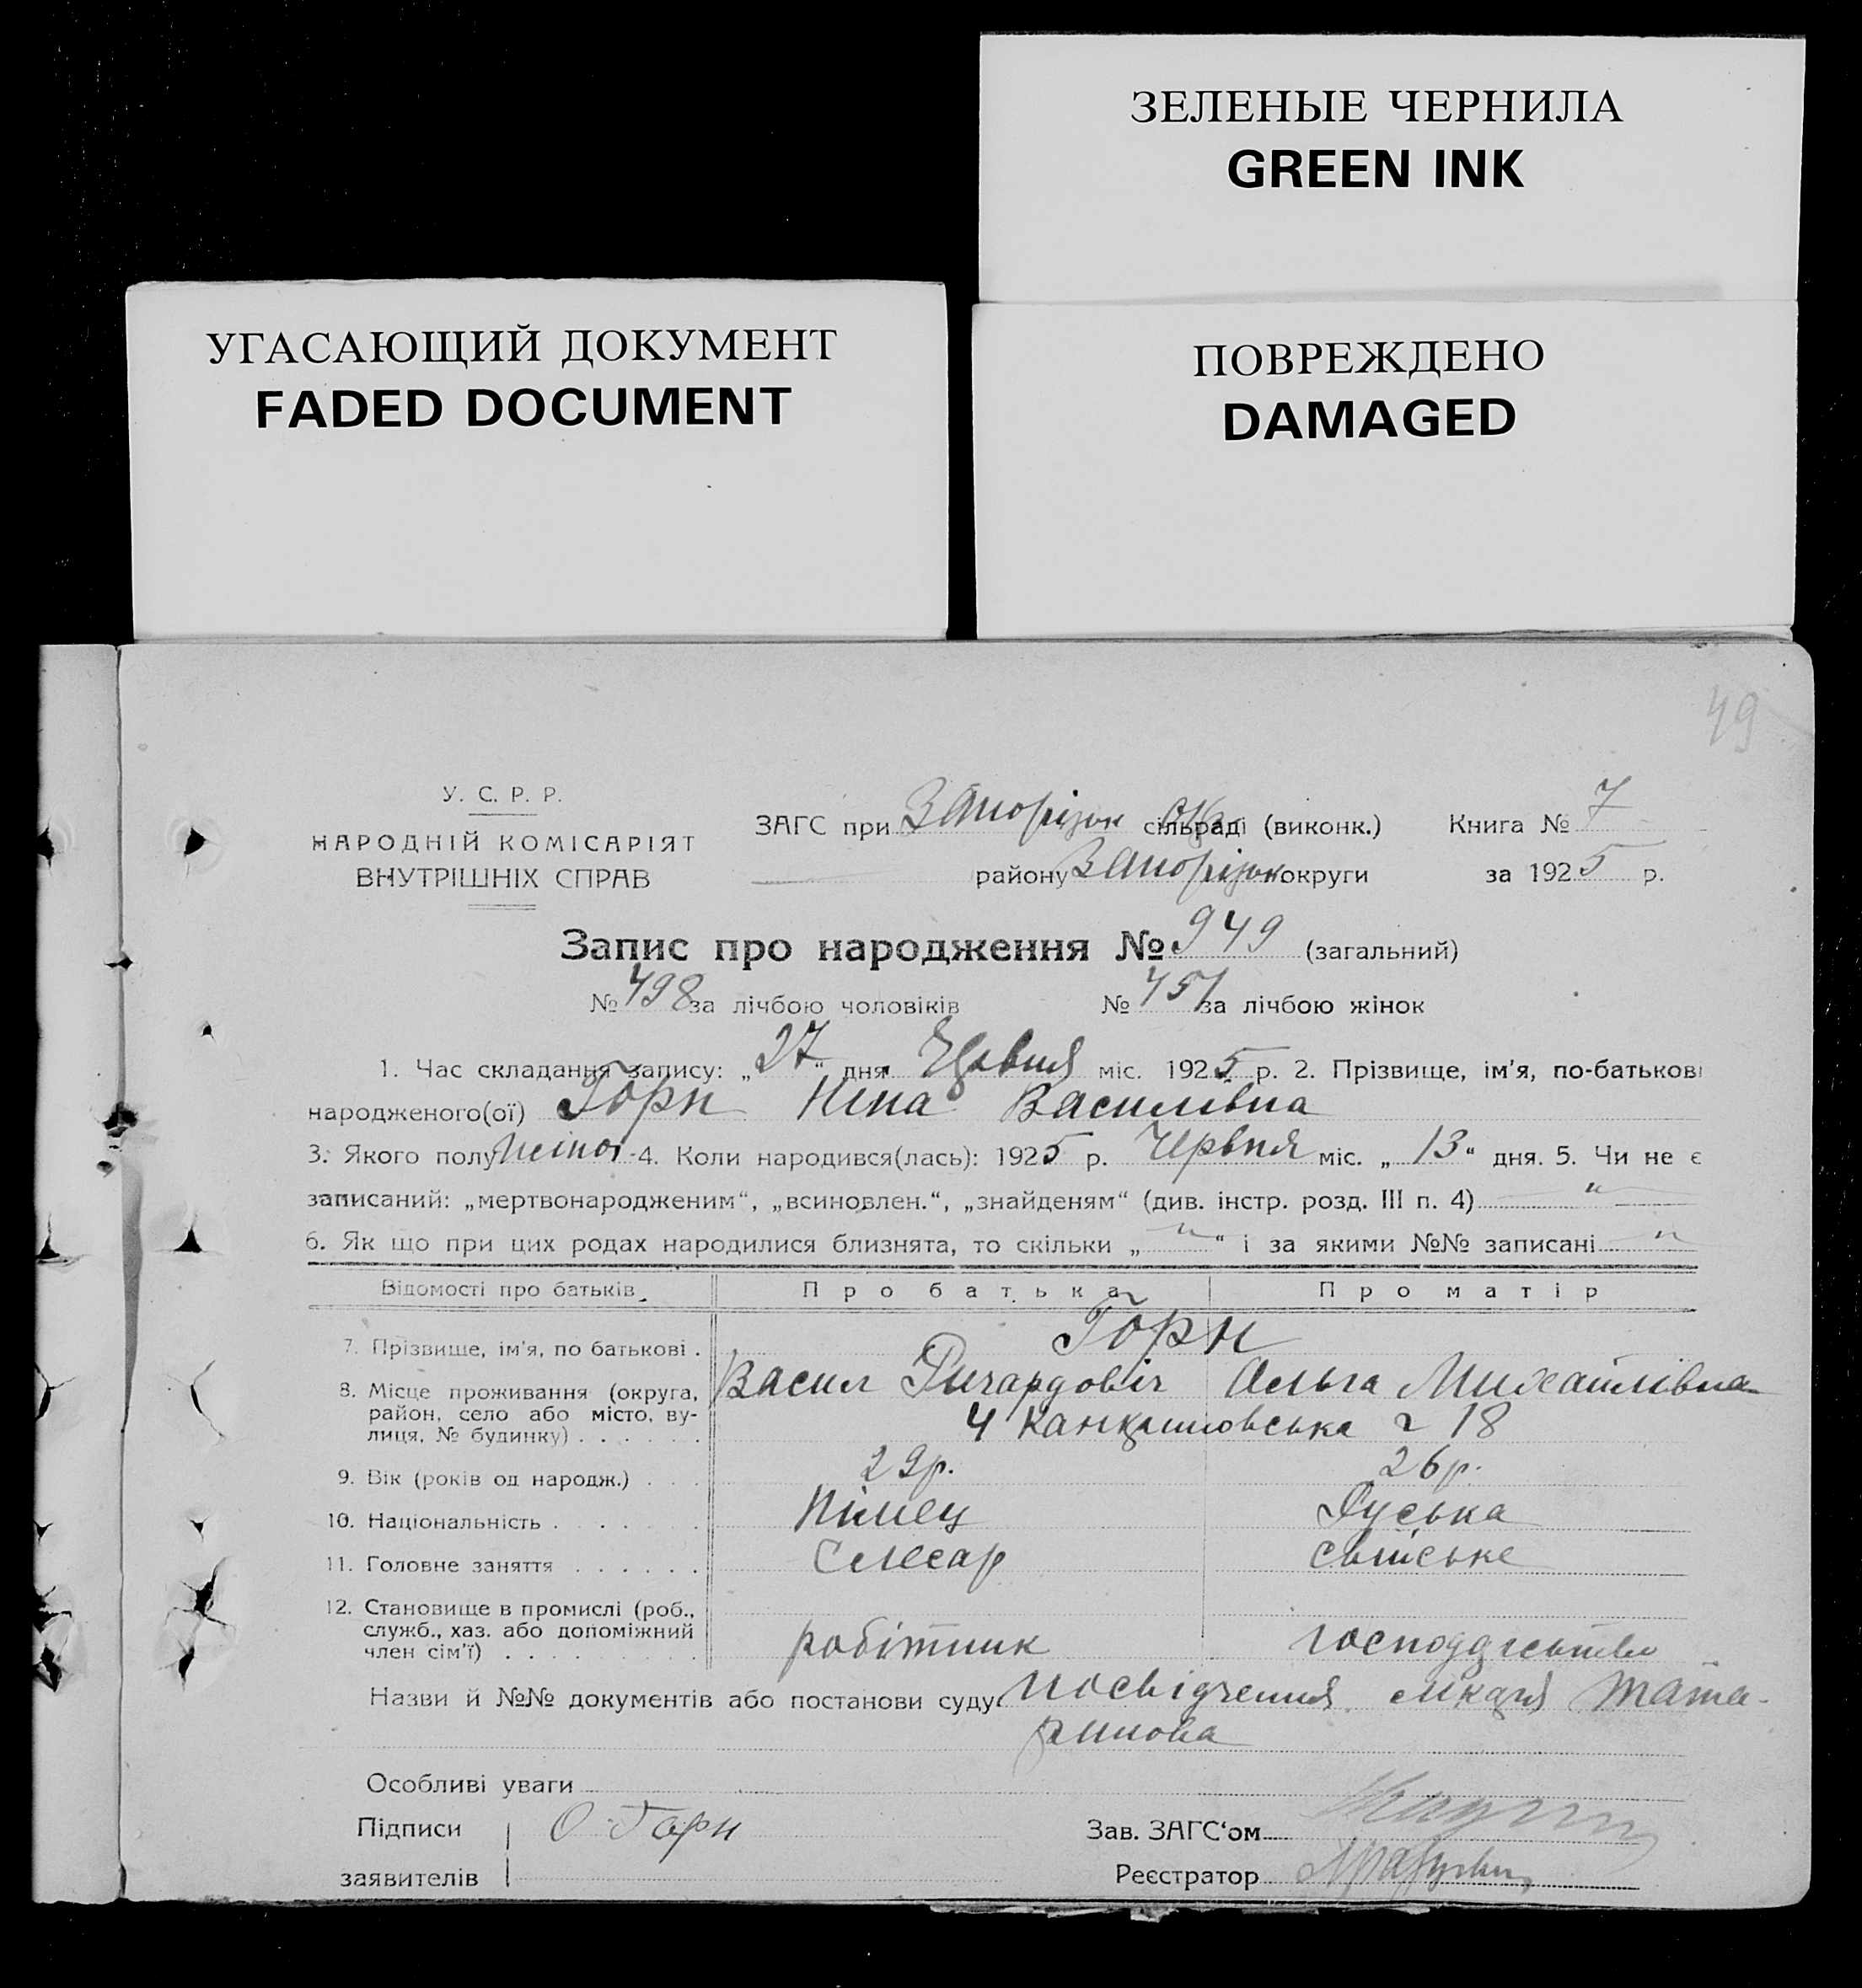 ЗЕЛЕНЫЕ ЧЕРНИЛА
GREEN INK
УГАСАЮЩИЙ ДОКУМЕНТ
FADED DOCUMENT
ПОВРЕЖДЕНО
DAMAGED
49
У. С. Р. Р.
НАРОДНІЙ КОМІСАРІЯТ
ВНУТРІШНІХ СПРАВ
ЗАГС при Запорізьк сільраді (виконк.) Книга № 7
району Запорізьк округи за 1925 р.
Запис про народження № 949 (загальний)
№ 498 за лічбою чоловіків № 451 за лічбою жінок
1. Час складання запису: „27“ дня Червня міс. 1925 р. 2. Прізвище, ім'я, по-батькові
народженого(ої) Горн Ніна Василівна
3. Якого полу жіноі 4. Коли народився(лась): 1925 р. Червня міс. „13“ дня. 5. Чи не є
записаний: „мертвонародженим“, „всиновлен.“, „знайденям“ (див. інстр. розд. III п. 4) "
6. Як що при цих родах народилися близнята, то скільки „ " “ і за якими №№ записані "
Відомості про батьків Про батька Про матір
Горн
7. Прізвище, ім'я, по батькові . Васил Ричардовіч Ольга Михайлівна
8. Місце проживання (округа, район, село або місто, вулиця, № будинку) . . . . . . 4 18
9. Вік (років од народж.) . . . 29р. 26р.
10. Національність . . . . . . Німец Руська
11. Головне заняття . . . . . . Слесар свійське
12. Становище в промислі (роб.,
служб., хаз. або допоміжний
член сім'ї) . . . . . . . . . робітник господарство
Назви й №№ документів або постанови суду: посвідчення лікаря Тата-
ринова
Особливі уваги
Підписи О Горн Зав. ЗАГС‘ом
заявителів Реєстратор